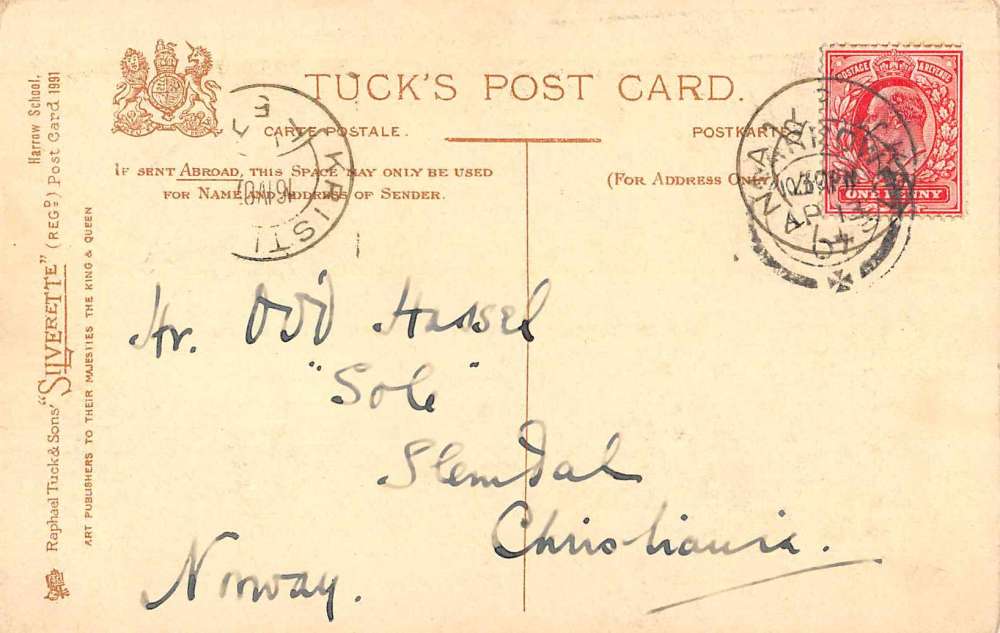 TUCK'S POST CARD.
CARTE POSTALE.
POSTKARTE
IF SENT ABROAD, THIS SPACE MAY ONLY BE USED
FOR NAME AND ADDRESS OF SENDER.
(FOR ADDRESS ONLY
POSTAGE & REVENUE
ONE PENNY
KRISTI
AP 13
04
Hr. Odd Hassel
"Sole"
Slemdal
Christiania.
Norway.
Harrow School.
Raphael Tuck & Sons' "SILVERETTE" (REGD) Post Card 1991
ART PUBLISHERS TO THEIR MAJESTIES THE KING & QUEEN